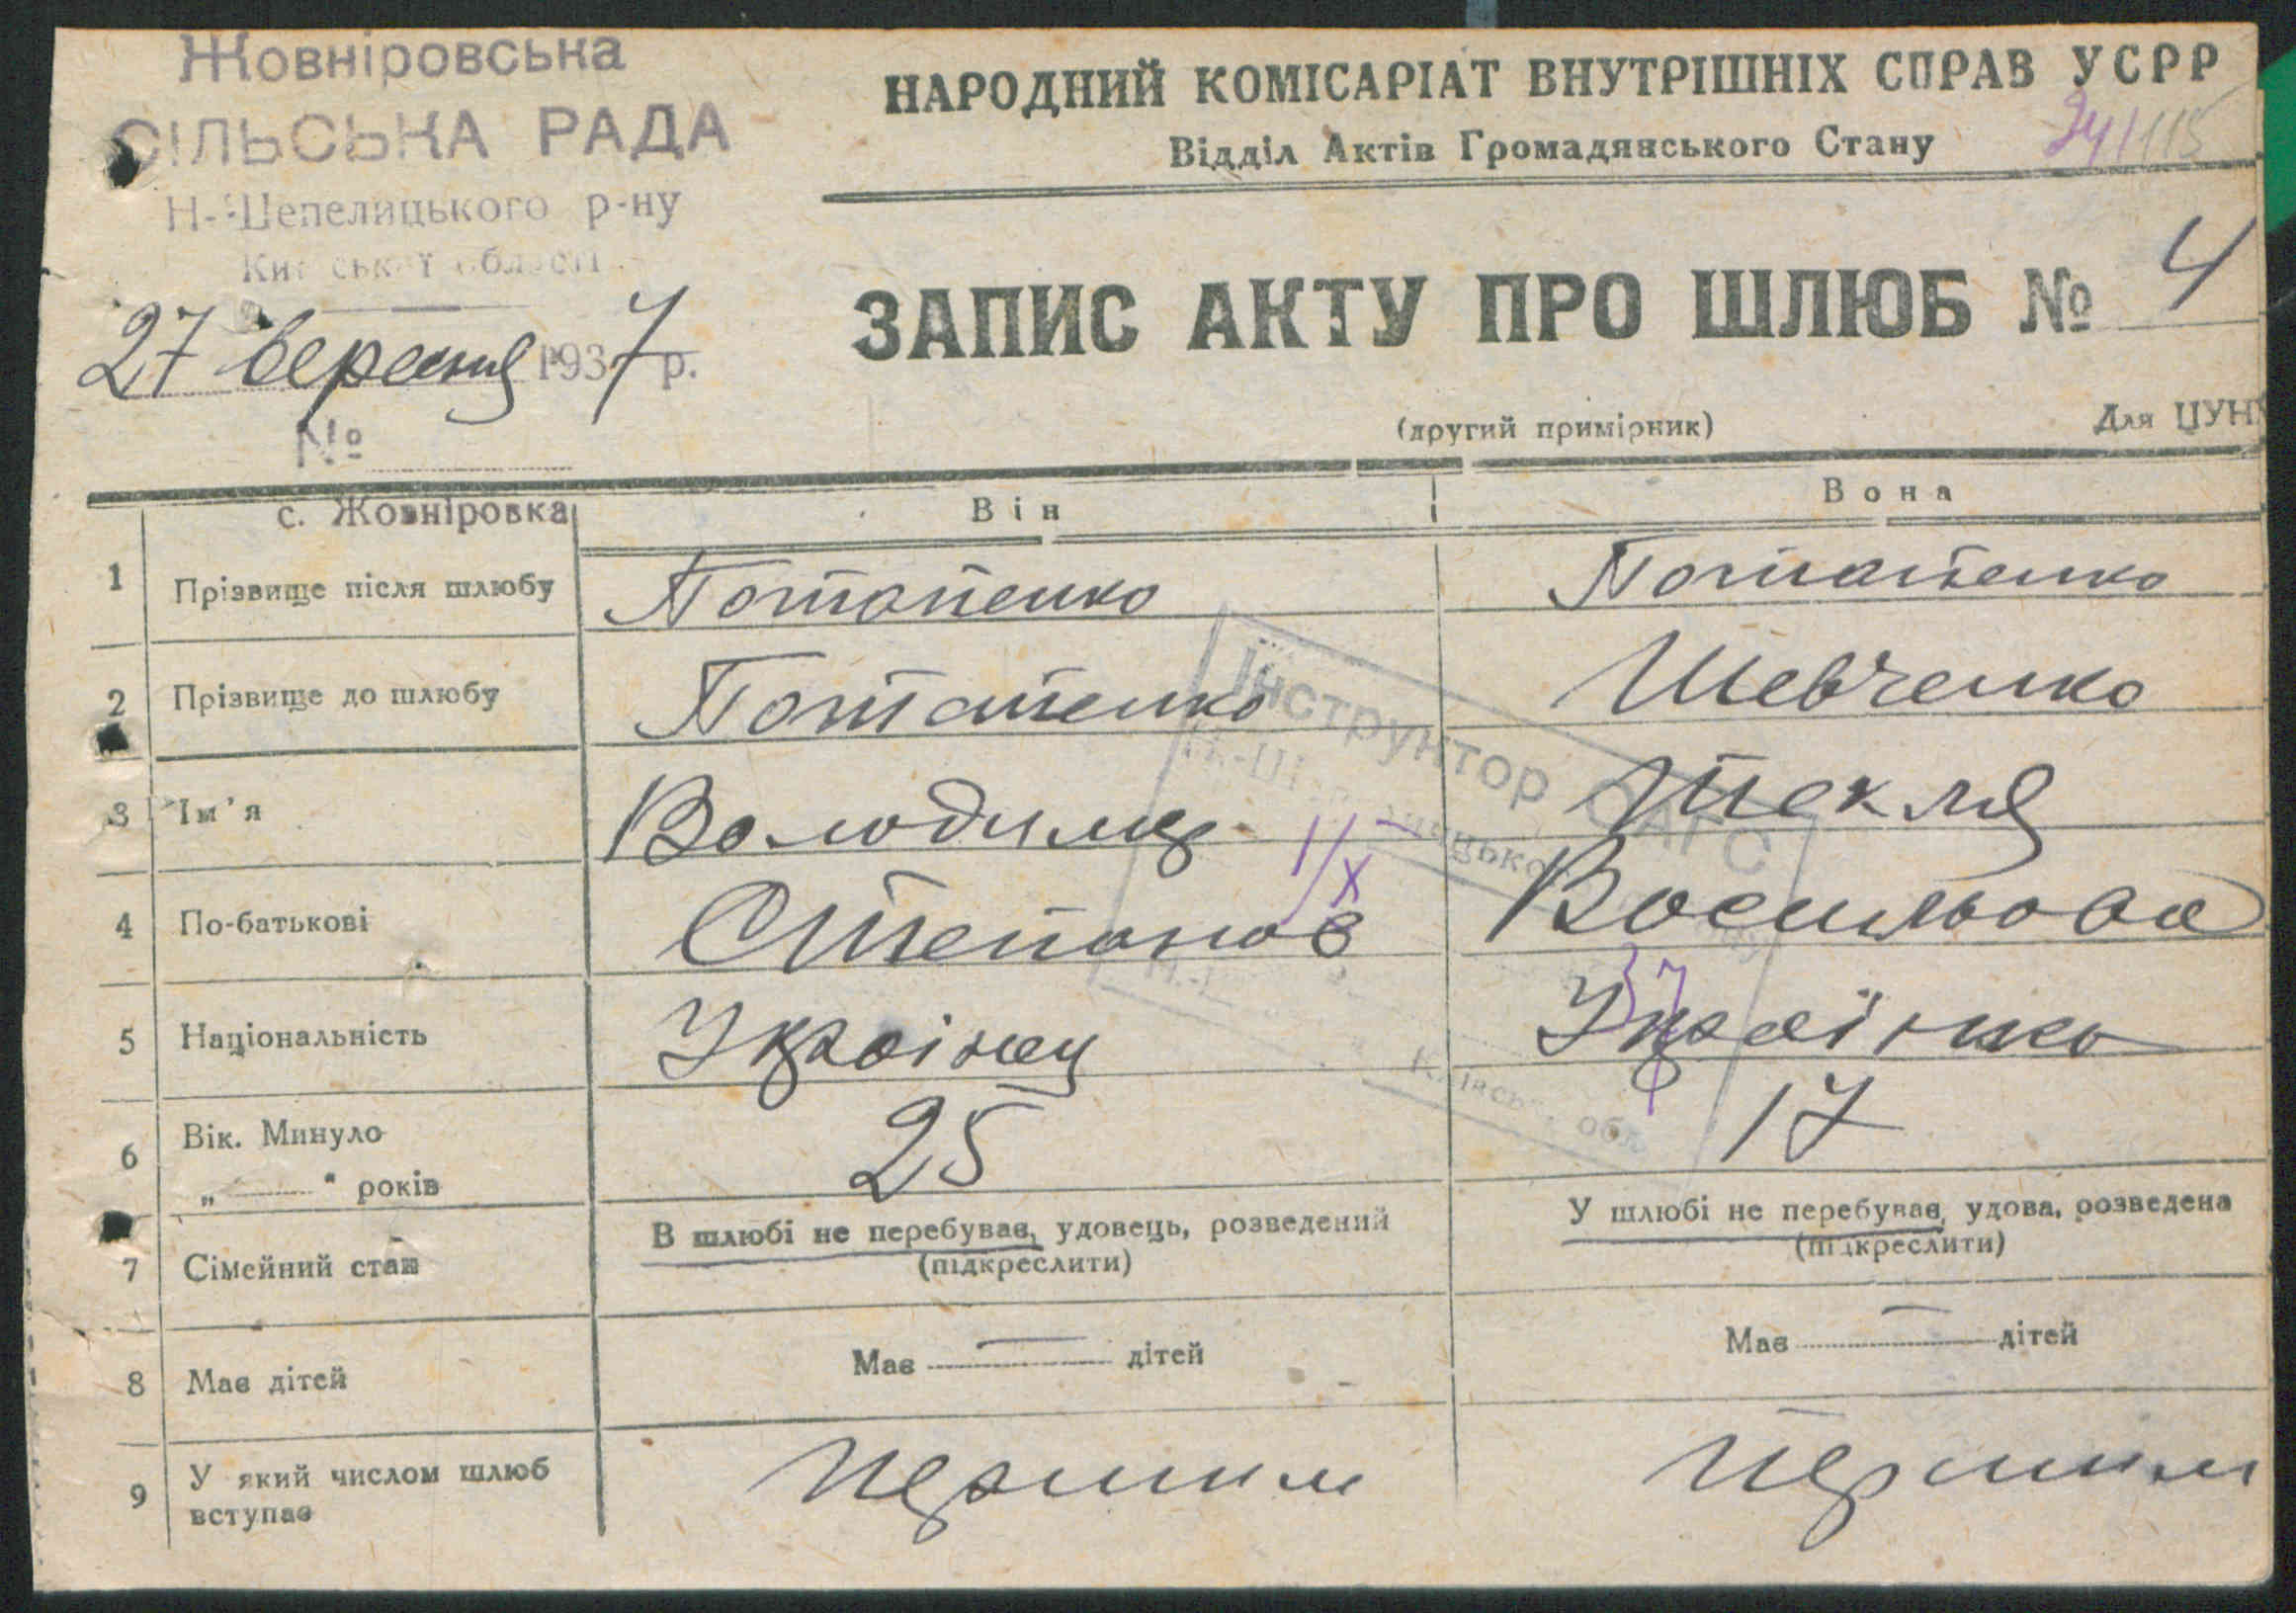 Жовніровська
СІЛЬСЬКА РАДА
Н-Шепелицького р-ну
Київської області
27 вересня 1937 р.
№
НАРОДНИЙ КОМІСАРІАТ ВНУТРІШНІХ СПРАВ УСРР
Відділ Актів Громадянського Стану
115
ЗАПИС АКТУ ПРО ШЛЮБ № 4
(другий примірник) Для ЦУН
с. Жовніровка Він Вона
1 Прізвище після шлюбу Потапенко Потапенко
2 Прізвище до шлюбу Потапенко Шевченко
3 Ім'я Володимир Текля
4 По-батькові Степанов Васильова
5 Національність Українец Українка
6 Вік. Минуло
„ " років 25 17
7 Сімейний стан В шлюбі не перебував, удовець, розведений У шлюбі не перебував, удова, розведена
(підкреслити) (підкреслити)
8 Має дітей Має — дітей Має — дітей
9 У який числом шлюб
вступає першим першим
Інструктор ОАГС
Київськ. обл.
1/X
37